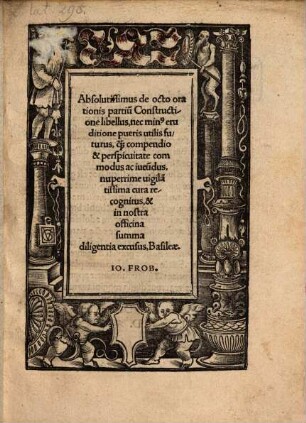 Absolutissimus de octo ora
tionis partiũ Constructi-
one libellus, nec minꝰ eru
ditione pueris utilis fu-
turus, q̃ compendio
& perspicuitate com
modus ac iucũdus,
nuperrime uigilã
tissima cura re-
cognitus, &
in nostra
officina
summa
diligentia excusus, Basileæ.
IO. FROB.